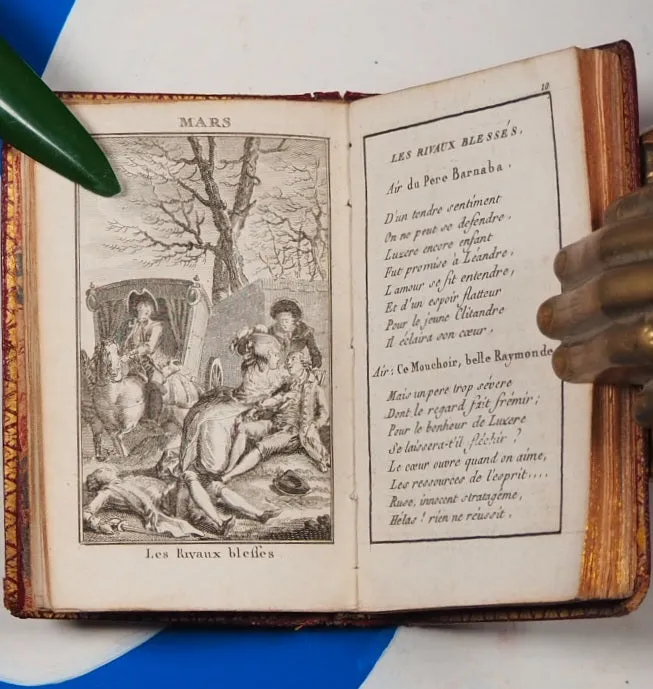 MARS
Les Rivaux blessés
10
LES RIVAUX BLESSÉS,
Air du Pere Barnaba.
D'un tendre sentiment
On ne peut se defendre,
Luzere encore enfant
Fut promise à Léandre,
L'amour se fit entendre,
Et d'un espoir flatteur
Pour le jeune Clitandre
Il éclaira son cœur.
Air: Ce Mouchoir, belle Raymonde
Mais un pere trop sévere
Dont le regard fait frémir;
Pour le bonheur de Luzere
Se laissera-t'il fléchir?
Le cœur ouvre quand on aime,
Les ressources de l'esprit....
Ruse, innocent stratagême,
Hélas! rien ne réussit.